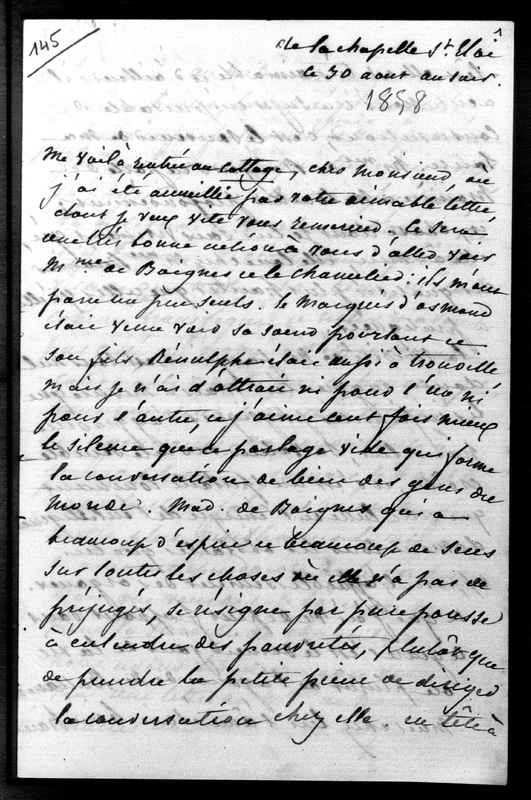 145
1
de la chapelle St. Eloi
ce 30 aout au soir.
1858
Me voilà rentrée au Cottage, cher Monsieur, où
j'ai été accueillie par votre aimable lettre,
dont je veux vite vous remercier. Ce serai
une très bonne action à vous d'aller voir
Mme de Boignes et le Chancelier : ils m'ont
paru un peu seuls. le Marquis d'osmond
était venu voir sa soeur pourtant et
son fils Rainulphe était aussi à trouville
mais je n'ai d'attrait ni pour l'un ni
pour l'autre, et j'aime cent fois mieux
le silence que ce parlage vide qui forme
la conversation de bien des gens du
monde. Mad. de Boignes qui a
beaucoup d'esprit et beaucoup de sens
sur toutes les choses où elle n'a pas de
préjugés, se résigne par pure paresse
à entendre des pauvretés, plutôt que
de prendre la petite peine de diriger
la conversation chez elle. en tête à